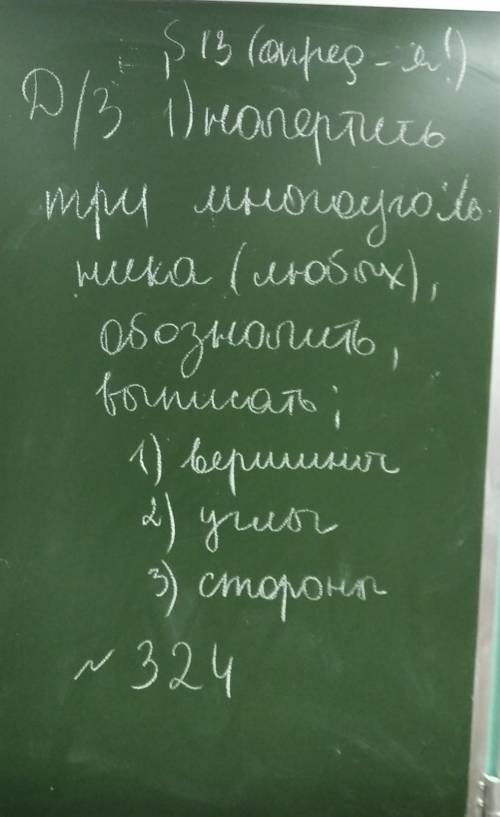 § 13 (опред-я!)
Д/З 1) начертить
три многоуголь-
ника (любых),
обозначить,
выписать:
1) вершины
2) углы
3) стороны
№ 324